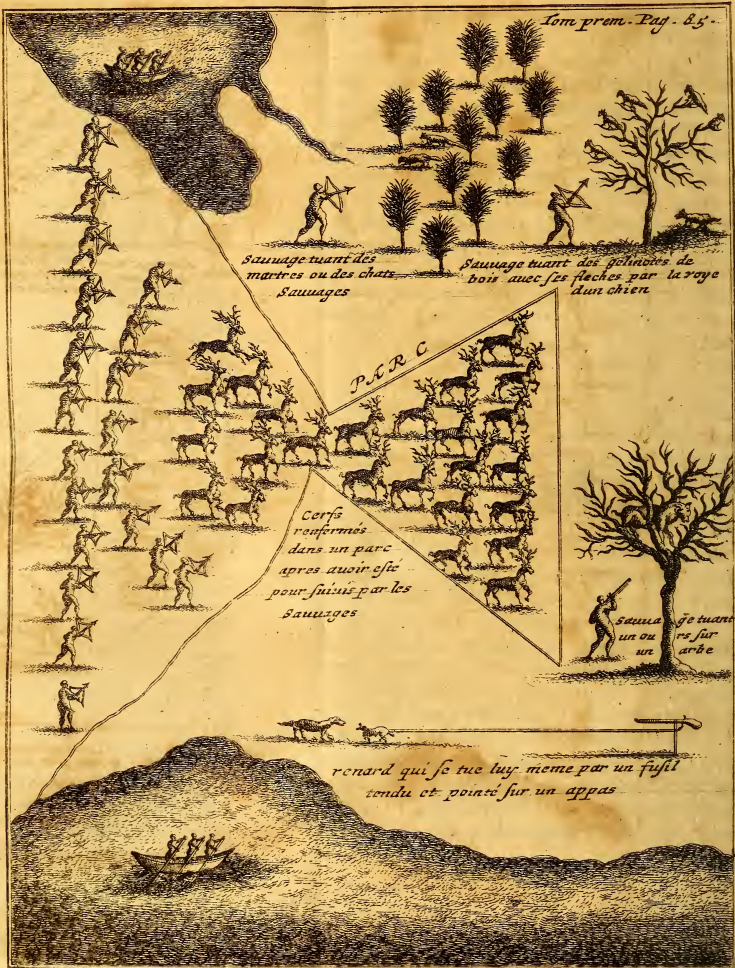 Tom prem. Pag. 85.
Sauuage tuant des
martres ou des chats
Sauuages
Sauuage tuant des gelinotes de
bois auec ses fleches par la voye
dun chien
PARC
Cerfs
renfermés
dans un parc
apres auoir esté
poursuiuis par les
Sauuages
Sauuage tuant
un ours sur
un arbe
renard qui se tue luy meme par un fusil
tendu et pointé sur un appas